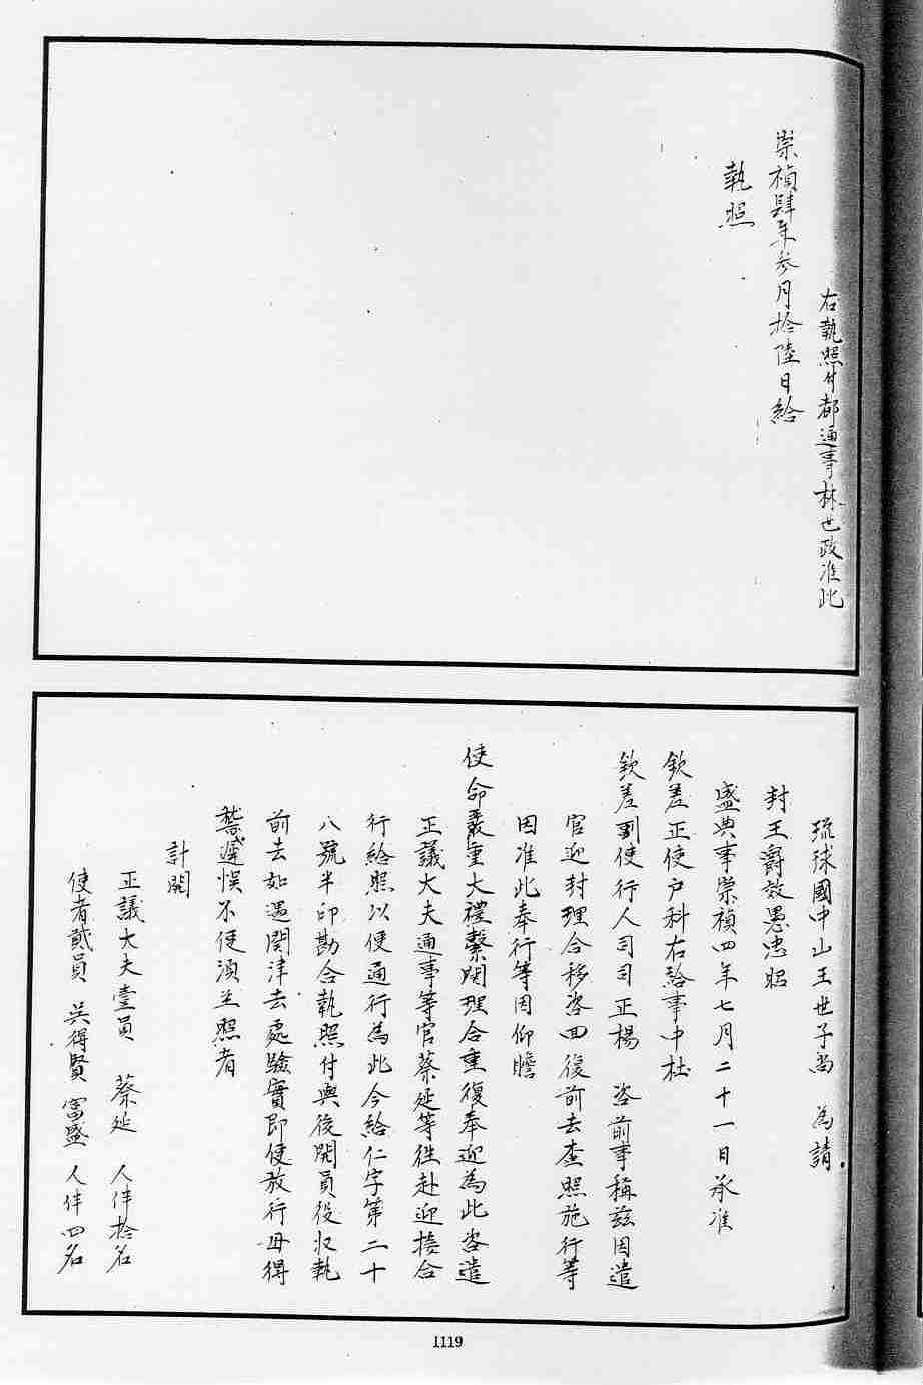 右執照付都通事林世政准此
崇禎肆年參月拾陸日給
執照
琉球國中山王世子尚　為請
封王爵效愚忠昭
盛典事崇禎四年七月二十一日承准
欽差正使户科右給事中杜
欽差副使行人司司正楊　咨前事稱茲因遣
官迎封理合移咨回復前去查照施行等
因准此奉行等因仰瞻
使命嚴重大禮繫関理合重復奉迎為此咨遣
正議大夫通事等官蔡延等徃赴迎接合
行給照以便通行為此今給仁字第二十
八號半印勘合執照付與後開員役收執
前去如遇関津去處驗實即便放行毋得
稽遲悮不便湏至照者
計開
正議大夫壹員　蔡延　人伴拾名
使者貳員　吳得賢　富盛　人伴四名
1119